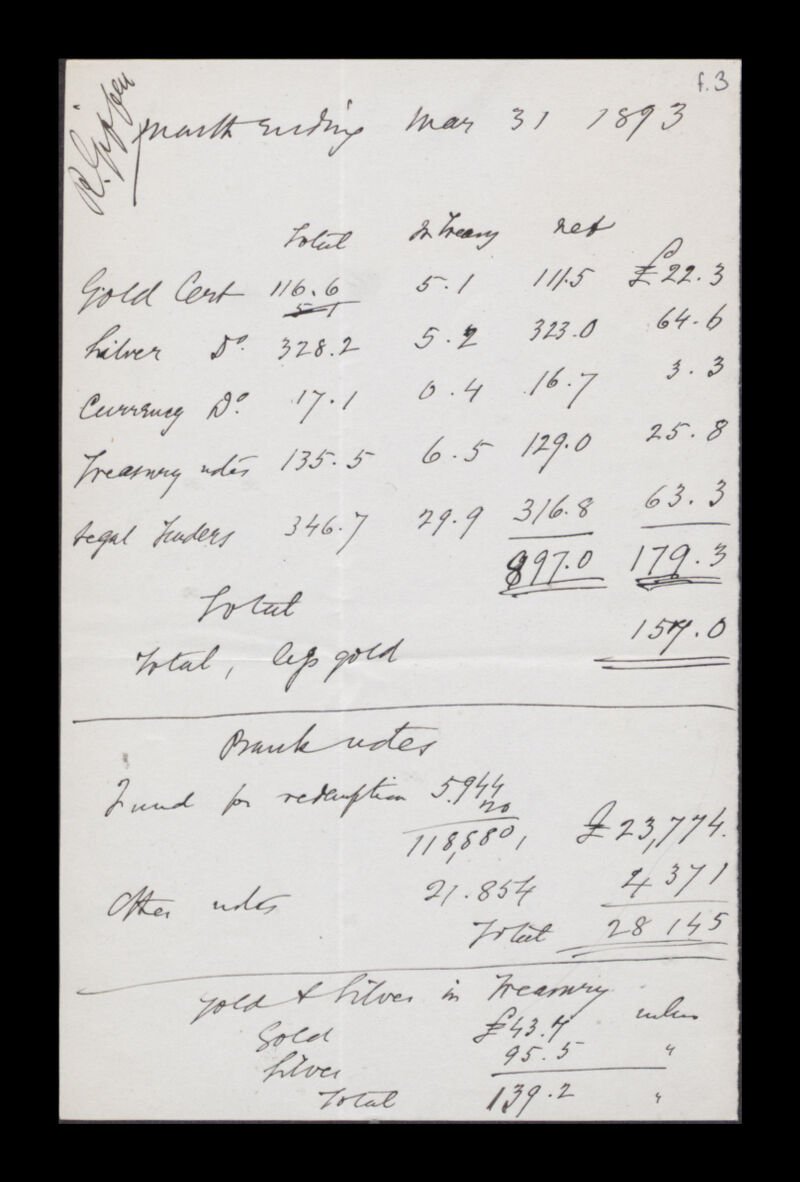 f.3
R. Giffen
Month ending Mar 31 1893
Total In Treasy net
Gold Cert 116.6 5.1 111.5 £22.3
5.1
Silver Do. 328.2 5.2 323.0 64.6
Currency Do. 17.1 0.4 16.7 3.3
Treasury notes 135.5 6.5 129.0 25.8
Legal Tenders 346.7 29.9 316.8 63.3
897.0 179.3
Total
Total, less gold 157.0
Bank notes
Fund for redemption 5.944
20
118,880, £23,774.
Other notes 21.854 4 371
Total 28 145
Gold & Silver in Treasury
Gold £43.7 mlns
Silver 95.5 "
Total 139.2 "